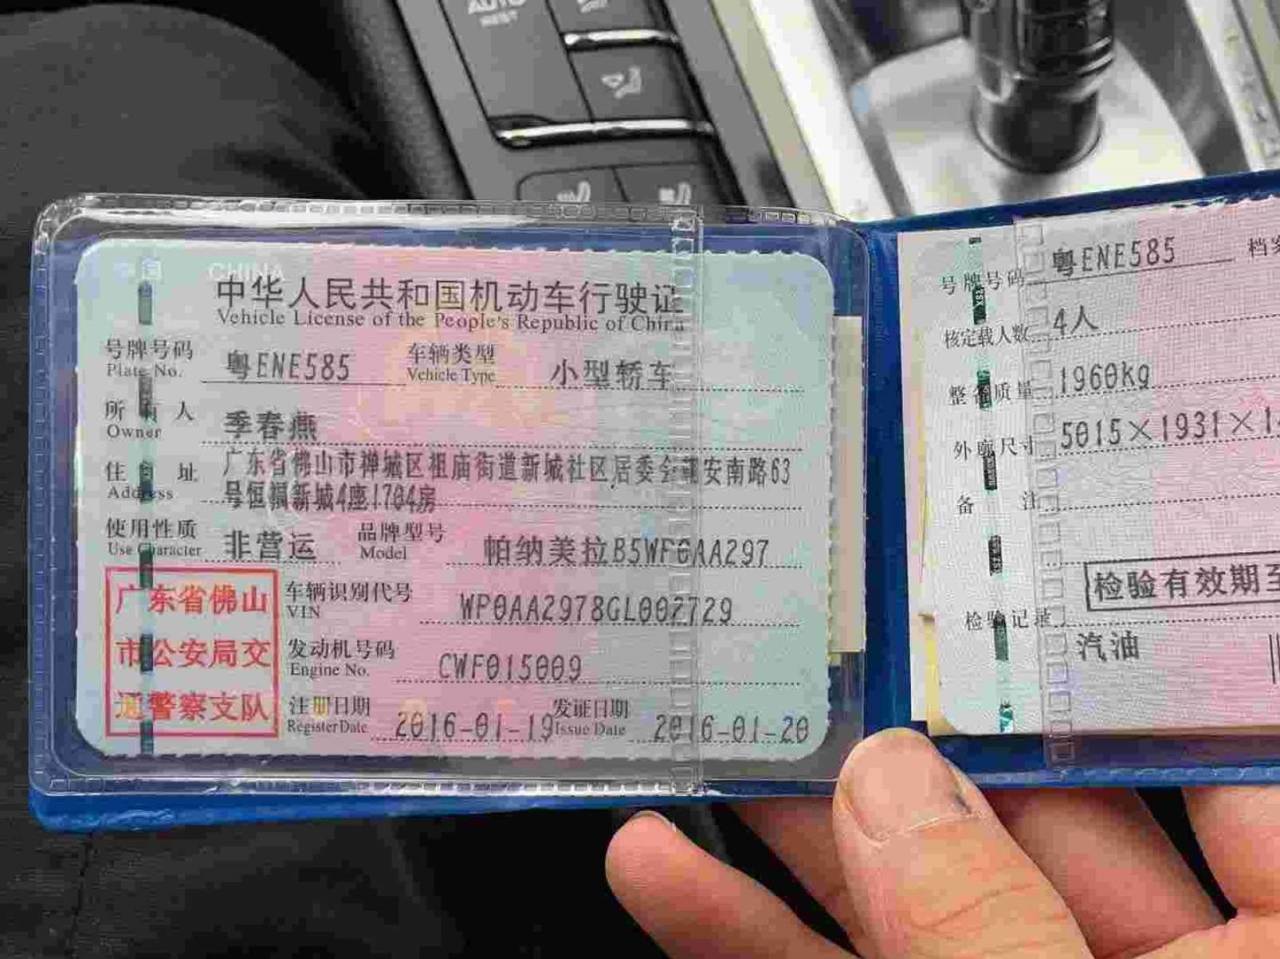 AUTO
REST
中国 CHINA
中华人民共和国机动车行驶证
Vehicle License of the People's Republic of China
号牌号码 粤ENE585 车辆类型 小型轿车
Plate No. Vehicle Type
所有人 季春燕
Owner
住址 广东省佛山市禅城区祖庙街道新城社区居委会建安南路63
Address 号恒福新城4座1704房
使用性质 非营运 品牌型号 帕纳美拉B5WF6AA297
Use Character Model
广东省佛山
市公安局交
通警察支队
车辆识别代号 WP0AA2978GL002729
VIN
发动机号码 CWF015009
Engine No.
注册日期 2016-01-19 发证日期 2016-01-20
Register Date Issue Date
号牌号码 粤ENE585 档案
核定载人数 4人
整备质量 1960kg
外廓尺寸 5015×1931×1
备注
检验有效期至
检验记录
汽油